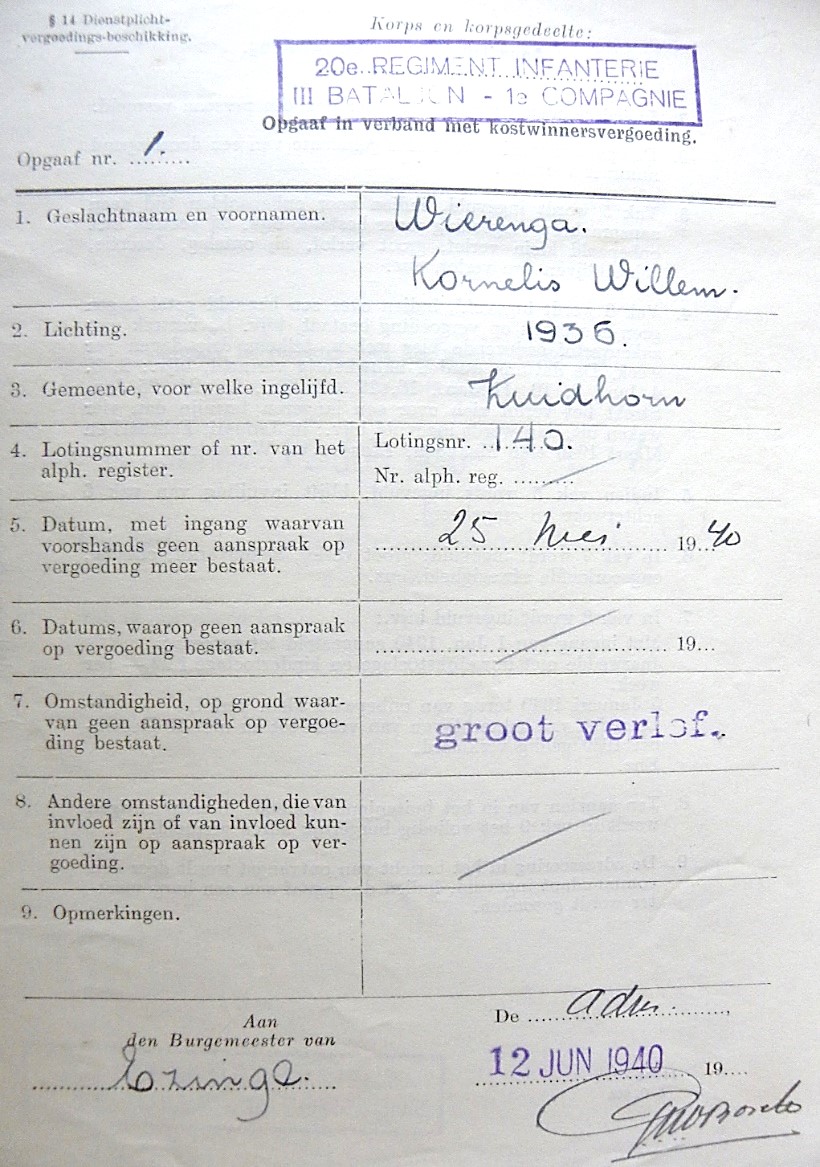 § 14 Dienstplicht-
vergoedings-beschikking.
Korps en korpsgedeelte:
20e REGIMENT INFANTERIE
III BATALJON - 1e COMPAGNIE
Opgaaf in verband met kostwinnersvergoeding.
Opgaaf nr. 1.
1. Geslachtnaam en voornamen.
Wierenga.
Kornelis Willem.
2. Lichting.
1936.
3. Gemeente, voor welke ingelijfd.
Zuidhorn
4. Lotingsnummer of nr. van het
alph. register.
Lotingsnr. 140.
Nr. alph. reg.
5. Datum, met ingang waarvan
voorshands geen aanspraak op
vergoeding meer bestaat.
25 Mei 1940
6. Datums, waarop geen aanspraak
op vergoeding bestaat.
19...
7. Omstandigheid, op grond waar-
van geen aanspraak op vergoe-
ding bestaat.
groot verlof.
8. Andere omstandigheden, die van
invloed zijn of van invloed kun-
nen zijn op aanspraak op ver-
goeding.
9. Opmerkingen.
Aan
den Burgemeester van
Ezinge.
De adm.
12 JUN 1940 19....